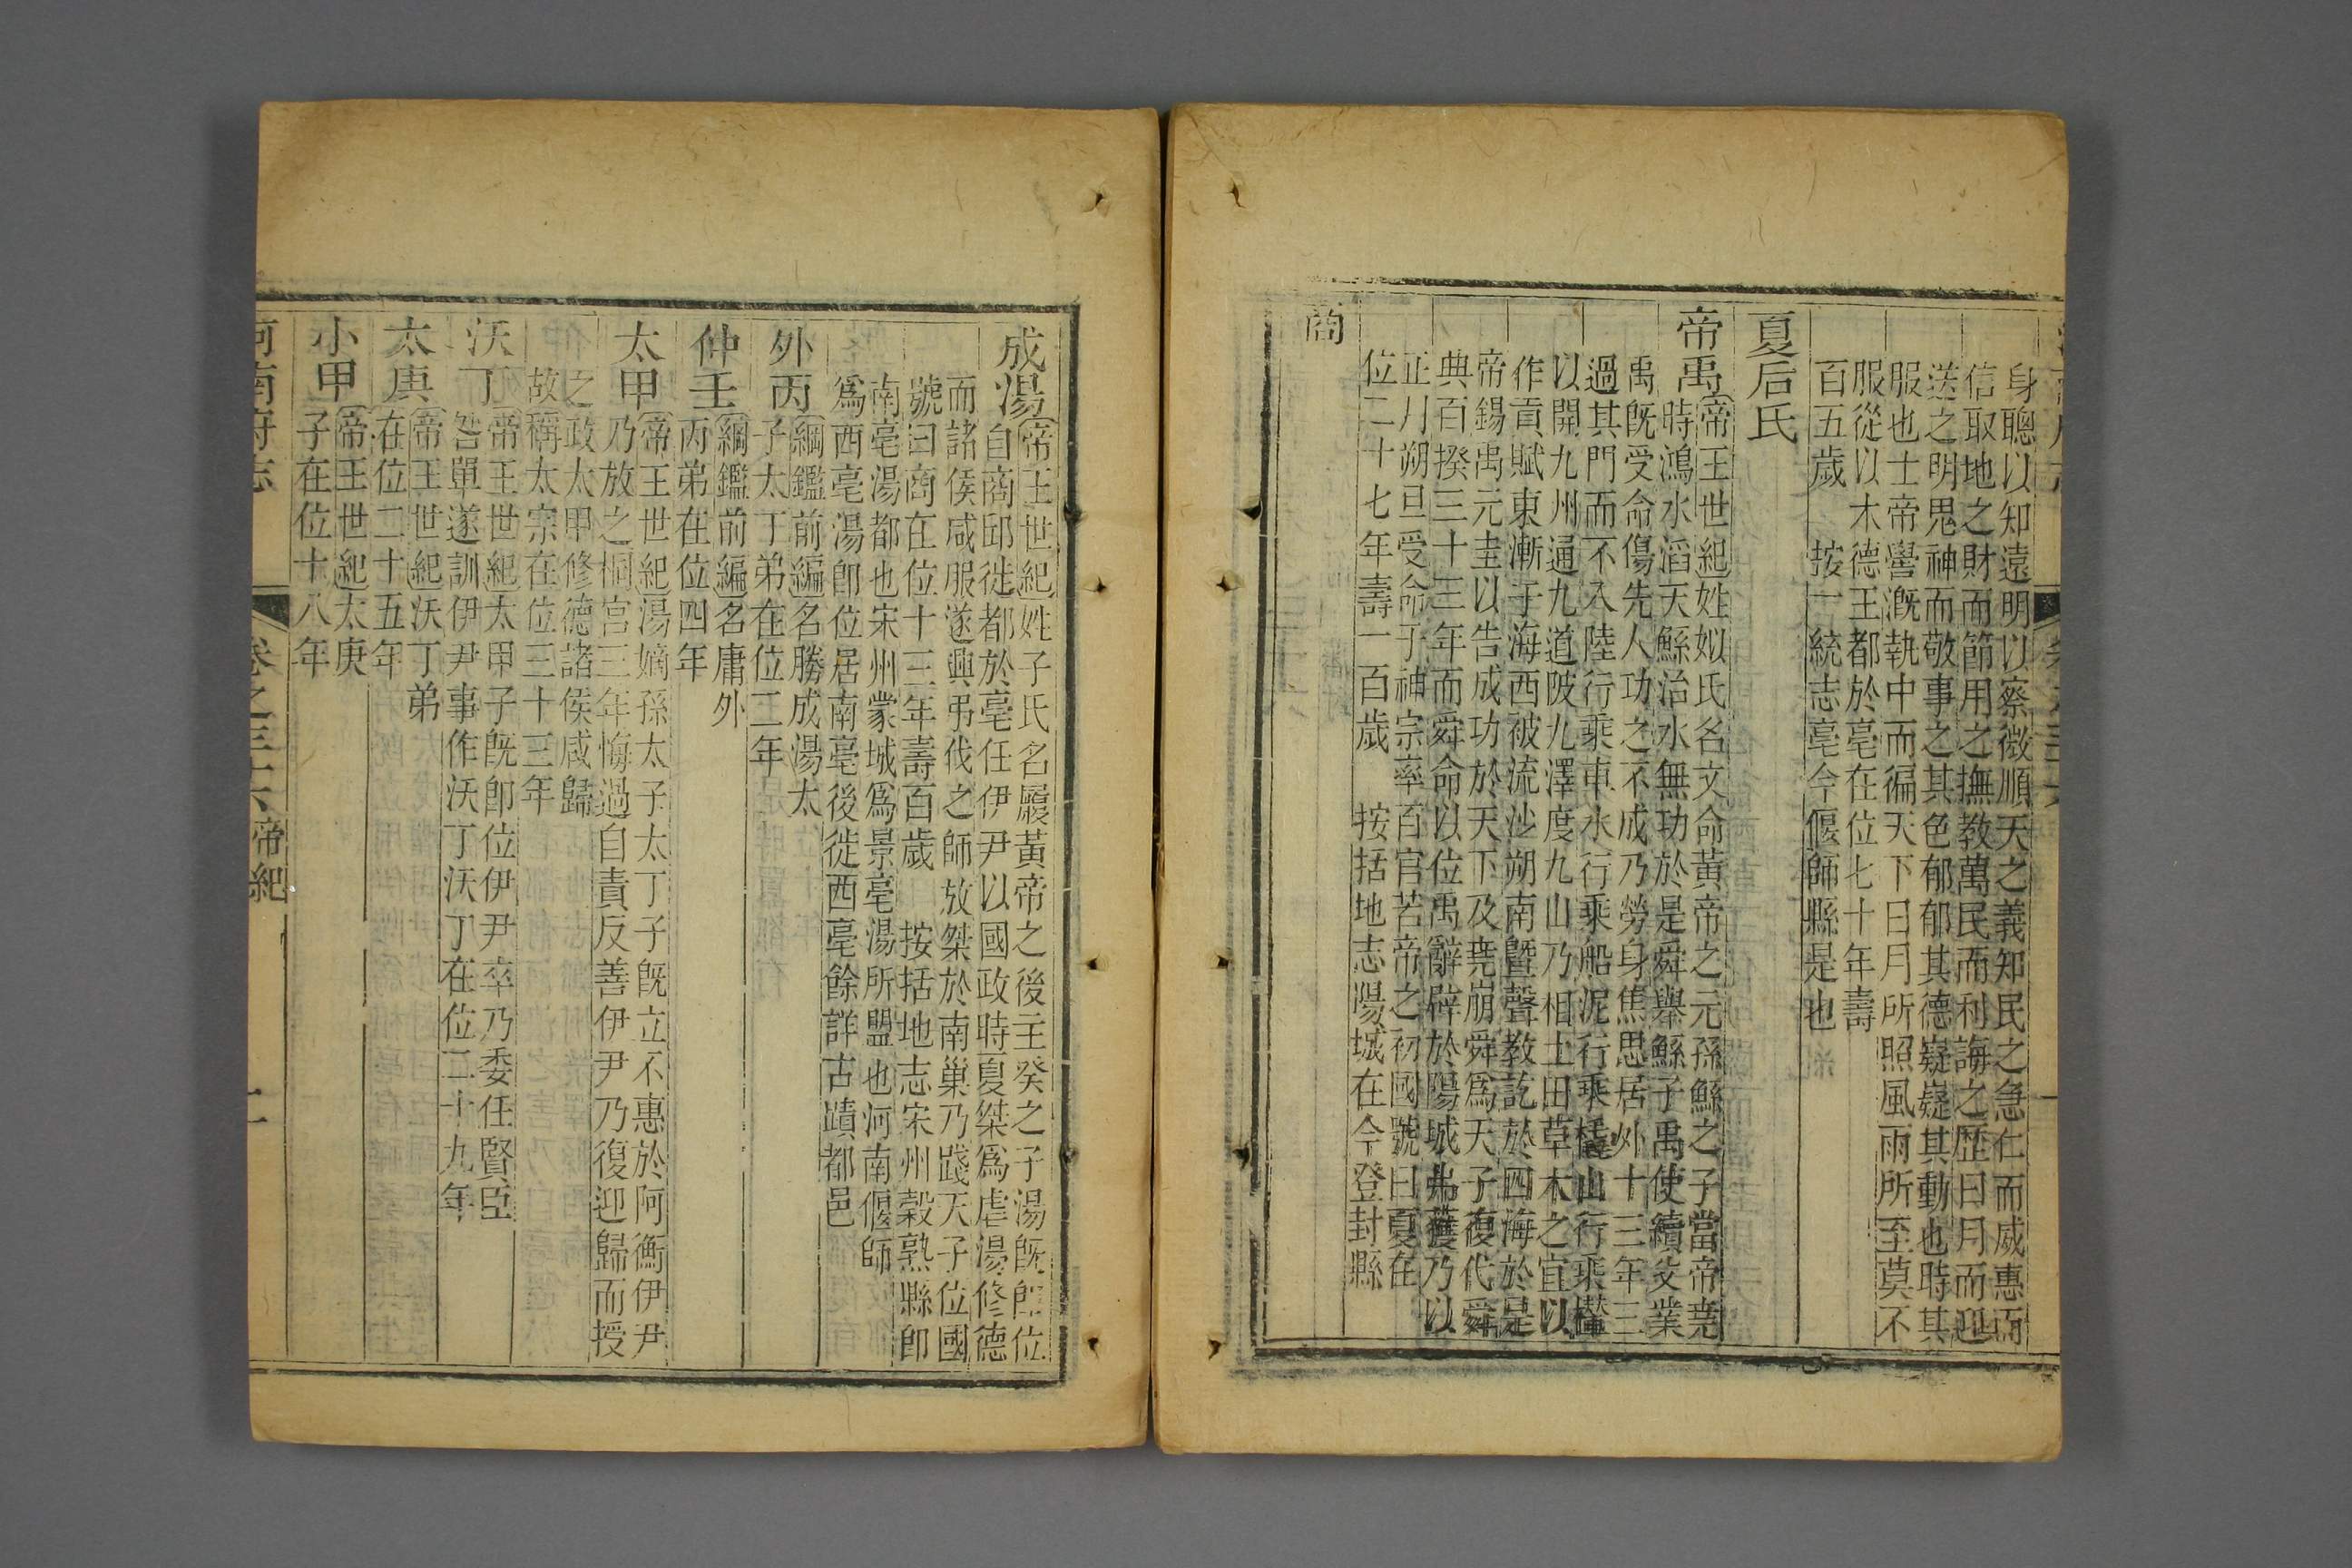 身聰以知遠明以察微順天之義知民之急仁而威惠而
信取地之財而節用之撫教萬民而利誨之歴日月而迎
送之明鬼神而敬事之其色郁郁其德嶷嶷其動也時其
服也士帝嚳漑執中而徧天下日月所照風雨所至莫不
服從以木德王都於亳在位七十年壽
百五歲　按一統志亳今偃師縣是也
夏后氏
帝禹
帝王世紀姓姒氏名文命黃帝之元孫鯀之子當帝堯
時鴻水滔天鯀治水無功於是舜舉鯀子禹使續父業
禹旣受命傷先人功之不成乃勞身焦思居外十三年三
過其門而不入陸行乘車水行乘船泥行乘橇山行乘檋
以開九州通九道陂九澤度九山乃相土田草木之宜以
作貢賦東漸于海西被流沙朔南暨聲教訖於四海於是
帝錫禹元圭以告成功於天下及堯崩舜爲天子復代舜
典百揆三十三年而舜命以位禹辭辟於陽城弗獲乃以
正月朔旦受命于神宗率百官若帝之初國號曰夏在
位二十七年壽一百歲　按括地志陽城在今登封縣
商
成湯
帝王世紀姓子氏名履黃帝之後主癸之子湯旣卽位
自商邱徙都於亳任伊尹以國政時夏桀爲虐湯修德
而諸侯咸服遂興弔伐之師放桀於南巢乃踐天子位國
號曰商在位十三年壽百歲　按括地志宋州穀熟縣卽
南亳湯都也宋州蒙城爲景亳湯所盟也河南偃師
爲西亳湯卽位居南亳後徙西亳餘詳古蹟都邑
外丙
綱鑑前編名勝成湯太
子太丁弟在位二年
仲壬
綱鑑前編名庸外
丙弟在位四年
太甲
帝王世紀湯嫡孫太子太丁子旣立不惠於阿衡伊尹
乃放之桐宮三年悔過自責反善伊尹乃復迎歸而授
之政太甲修德諸侯咸歸
故稱太宗在位三十三年
沃丁
帝王世紀太甲子旣卽位伊尹卒乃委任賢臣
咎單遂訓伊尹事作沃丁沃丁在位二十九年
太庚
帝王世紀沃丁弟
在位二十五年
小甲
帝王世紀太庚
子在位十八年
河南府志　卷之三十六帝紀